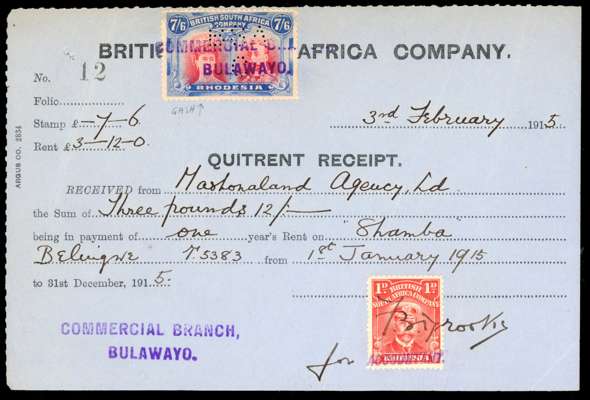 7/6 BRITISH SOUTH AFRICA COMPANY 7/6
RHODESIA
COMMERCIAL
BULAWAYO.
BRITI AFRICA COMPANY.
No. 12
Folio
GASH
Stamp £-7-6
3rd February 1915.
Rent £3-12-0
ARGUS CO. 2834
QUITRENT RECEIPT.
RECEIVED from Mashonaland Agency, Ld
the Sum of Three pounds 12/-
being in payment of one year's Rent on "Shamba"
Belingwe 5383 from 1st January 1915
to 31st December, 1915.
1D 1D
BRITISH
SOUTH AFRICA COMPANY
RHODESIA
COMMERCIAL BRANCH,
BULAWAYO.
for